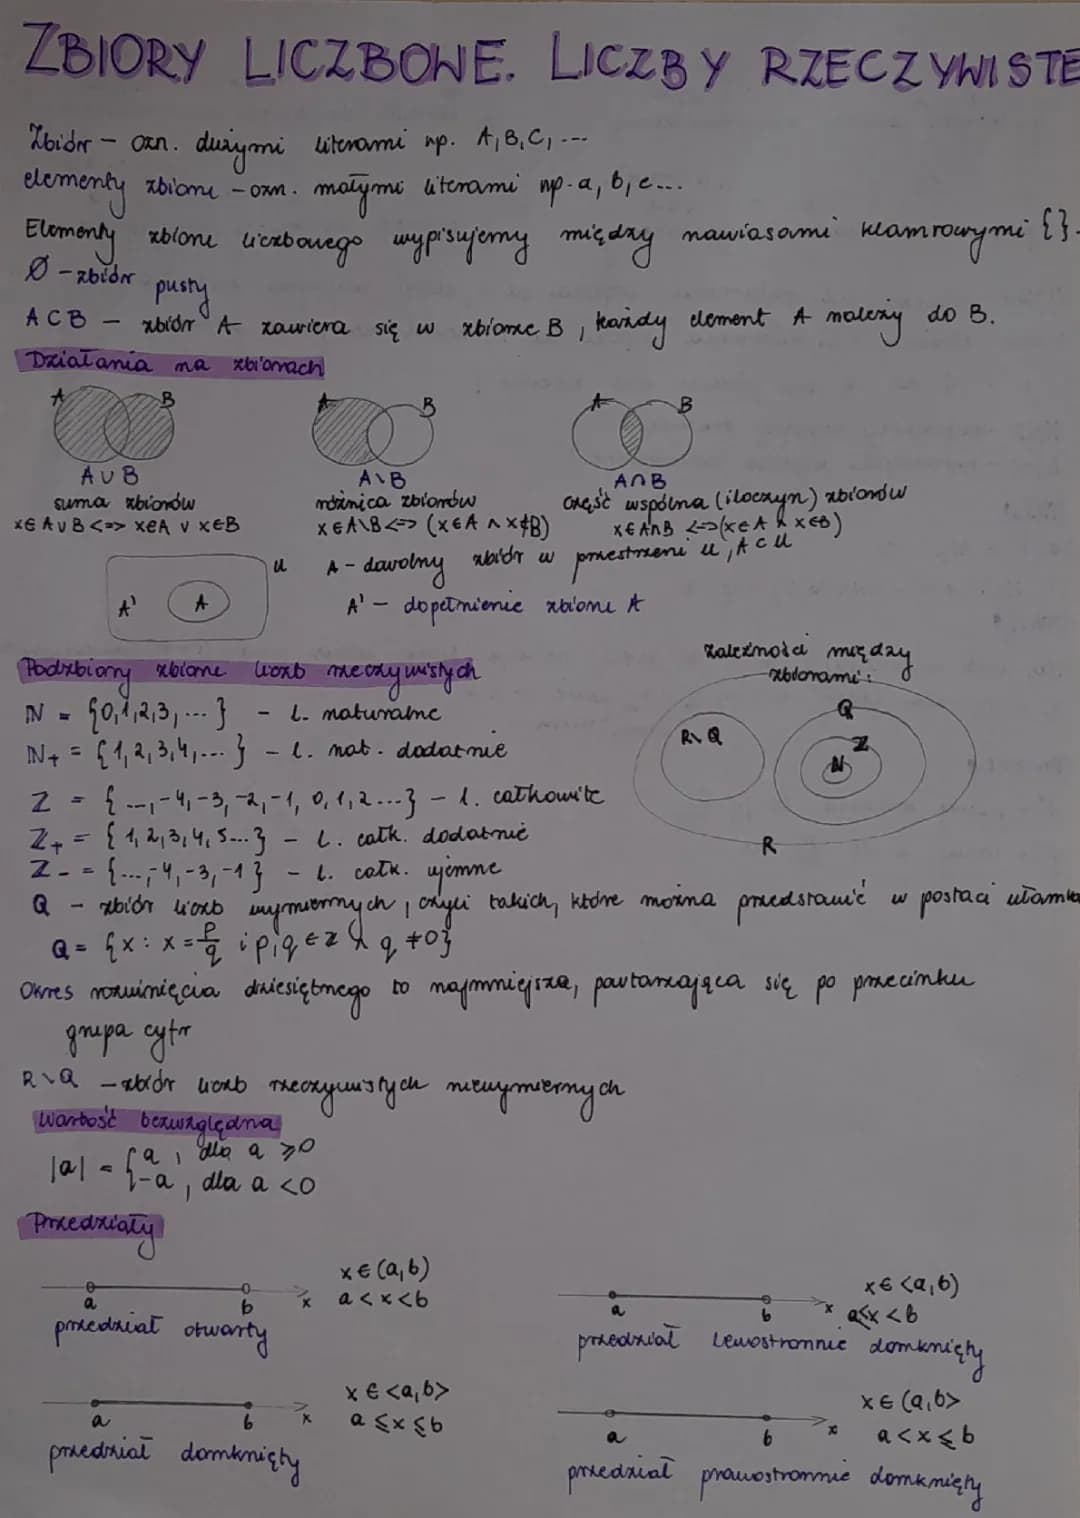 ZBIORY LICZBOWE. LICZBY RZECZYWISTE
Zbiór – ozn. dużymi literami np. A, B, C, ...
elementy zbioru – ozn. małymi literami np. a, b, c...
Elementy zbioru liczbowego wypisujemy między nawiasami klamrowymi { }.
Ø – zbiór pusty
A⊂B – zbiór A zawiera się w zbiorze B, każdy element A należy do B.
Działania na zbiorach
A B
A B
A B
A∪B
A\B
A∩B
suma zbiorów
różnica zbiorów
część wspólna (iloczyn) zbiorów
x∈A∪B <=> x∈A ∨ x∈B
x∈A\B <=> (x∈A ∧ x∉B)
x∈A∩B <=> (x∈A ∧ x∈B)
U
A' A
A – dowolny zbiór w przestrzeni U, A⊂U
A' – dopełnienie zbioru A
Podzbiory zbioru liczb rzeczywistych
zależności między
zbiorami:
N = {0,1,2,3,...} – l. naturalne
N+ = {1,2,3,4,...} – l. nat. dodatnie
R\Q
Q
Z
N
R
Z = {...,-4,-3,-2,-1,0,1,2...} – l. całkowite
Z+ = {1,2,3,4,5...} – l. całk. dodatnie
Z- = {...,-4,-3,-1} – l. całk. ujemne
Q – zbiór liczb wymiernych, czyli takich, które można przedstawić w postaci ułamka
Q = {x : x = p/q i p,q ∈ Z ∧ q ≠ 0}
Okres rozwinięcia dziesiętnego to najmniejsza, powtarzająca się po przecinku
grupa cyfr
R\Q – zbiór liczb rzeczywistych niewymiernych
Wartość bezwzględna
|a| = { a, dla a ⩾ 0
-a, dla a < 0
Przedziały
a b x
x∈(a,b)
a<x<b
przedział otwarty
a b x
x∈<a,b)
a⩽x<b
przedział lewostronnie domknięty
a b x
x∈<a,b>
a⩽x⩽b
przedział domknięty
a b x
x∈(a,b>
a<x⩽b
przedział prawostronnie domknięty